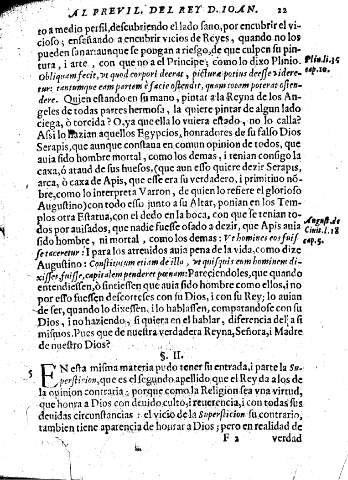 AL PREVIL. DEL REY D. IOAN. 22
to a medio perfil, descubriendo el lado sano, por encubrir el vi-
cioso; enseñando a encubrir vicios de Reyes, quando no los
pueden sanar: aunque se pongan a riesgo, de que culpen su pin-
tura, i arte, con que no a el Principe; como lo dixo Plinio.
Plin. li. 35
cap. 10.
Obliquam fecit, ut quod corpori deerat, picturæ potius deesse videre-
tur: tantumque eam partem è facie ostendit, quam totam poterat osten-
dere. Quien estando en su mano, pintar a la Reyna de los An-
geles de todas partes hermosa, la quiere pintar de algun lado
ciega, ò torcida? O, ya que ella lo uviera estado, no lo calla?
Assi lo hazian aquellos Egypcios, honradores de su falso Dios
Serapis, que aunque constava en comun opinion de todos, que
avia sido hombre mortal, como los demas, i tenian consigo la
caxa, ò ataud de sus huesos, (que aun esso quiere dezir Serapis,
arca, ò caxa de Apis, que esse era su verdadero, i primitivo nõ-
bre, como lo interpreta Varron, de quien lo refiere el glorioso
Augustino) con todo esso junto a su Altar, ponian en los Tem-
plos otra Estatua, con el dedo en la boca, con que se tenian to-
dos por avisados, que nadie fuesse osado a dezir, que Apis avia
sido hombre, ni mortal, como los demas: Ut homines eos fuis-
se taceretur: I para los atrevidos avia pena de la vida, como dize
August. de
Civit. l. 18
cap. 5.
Augustino: Constitutum etiam de illo, ut quisquis eum hominem di-
xisset, fuisse, capitalem penderet pœnam: Pareciendoles, que quando
entendiessen, ò sintiessen que avia sido hombre como ellos, i no
por esso fuessen descorteses con su Dios, i con su Rey; lo avian
de ser, quando lo dixessen, i lo hablassen, comparandose con tu
Dios, i no haziendo, si quiera en el hablar, diferencia del a si
mismos. Pues que de nuestra verdadera Reyna, Señora, i Madre
de nuestro Dios?
§. II.
5 EN esta misma materia pudo tener su entrada, i parte la Su-
perstición, que es el segundo apellido que el Rey da a los de
la opinion contraria; porque como la Religion sea vna virtud,
que honra a Dios con devido culto, i reverencia, i con todas sus
devidas circunstancias: el vicio de la Supersticion su contrario,
tambien tiene apariencia de honrar a Dios; pero en realidad de
F 2 verdad